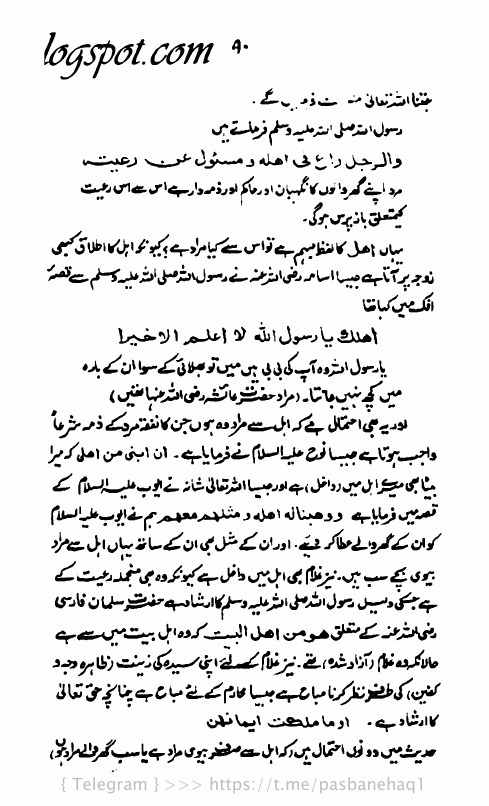 logspot.com ۹۰
جتنا اللہ تعالیٰ
رسول اللہ صلی اللہ علیہ وسلم فرماتے ہیں
والرجل راع فی اهله ومسئول عن رعیته
مرد اپنے گھر والوں کا نگہبان اور حاکم اور ذمہ دار ہے اس سے اس رعیت
کے متعلق باز پرس ہوگی۔
یہاں اھل کا لفظ مبہم ہے تو اس سے کیا مراد ہے؟ کیونکہ اہل کا اطلاق کبھی
زوجہ پر آتا ہے جیسا اسامہ رضی اللہ عنہ نے رسول اللہ صلی اللہ علیہ وسلم سے قصۂ
افک میں کہا تھا
اھلك یا رسول اللہ لا اعلم الا خیرا
یا رسول اللہ وہ آپ کی بی بی ہیں میں تو بھلائی کے سوا ان کے بارہ
میں کچھ نہیں جانتا۔ (مراد حضرت عائشہ رضی اللہ عنہا تھیں)
اور یہ بھی احتمال ہے کہ اہل سے مراد وہ ہوں جن کا نفقہ مرد کے ذمہ شرعاً
واجب ہوتا ہے جیسا نوح علیہ السلام نے فرمایا ہے۔ ان ابنی من اھلی کہ میرا
بیٹا بھی میرے اہل میں (داخل) ہے اور جیسا اللہ تعالیٰ شانہ نے ایوب علیہ السلام کے
قصہ میں فرمایا ہے ووھبنا له اھله ومثلھم معھم ہم نے ایوب علیہ السلام
کو ان کے گھر والے عطا کر دیئے۔ اور ان کے مثل بھی ان کے ساتھ یہاں اہل سے مراد
بیوی بچے سب ہیں۔ نیز غلام بھی اہل میں داخل ہے کیونکہ وہ بھی منجملہ رعیت کے
ہے جسکی دلیل رسول اللہ صلی اللہ علیہ وسلم کا ارشاد ہے حضرت سلمان فارسی
رضی اللہ عنہ کے متعلق ھو من اھل البیت کہ وہ اہل بیت میں سے ہے
حالانکہ وہ غلام (آزاد شدہ) تھے۔ نیز غلام کے لئے اپنی سیدہ کی زینت (ظاہرہ وجہ و
کفین) کی طرف نظر کرنا مباح ہے جیسا محارم کے لئے مباح ہے چنانچہ حق تعالیٰ
کا ارشاد ہے۔ او ما ملکت ایمانھن
حدیث میں دونوں احتمال ہیں (کہ اہل سے صرف بیوی مراد ہے یا سب گھر والے مراد ہوں)
{ Telegram } >>> https://t.me/pasbanehaq1